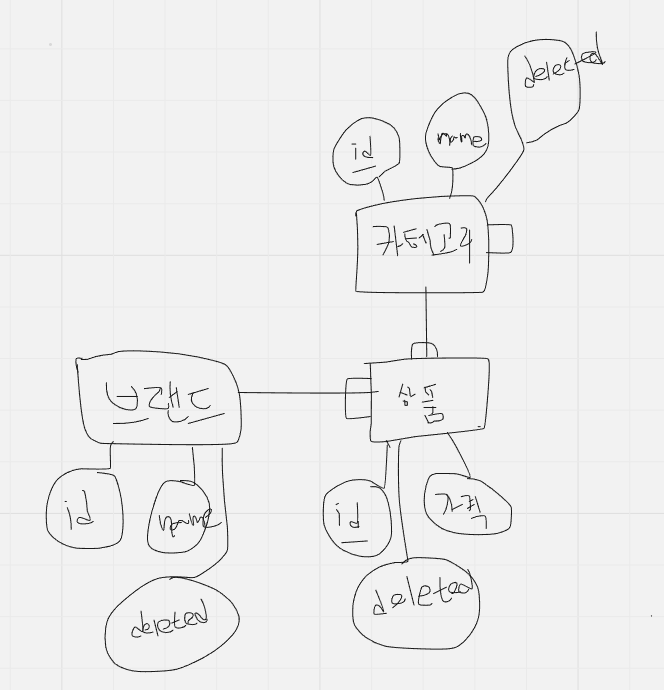 deleted
id
name
카테고리
브랜드
상품
id
name
id
가격
deleted
deleted